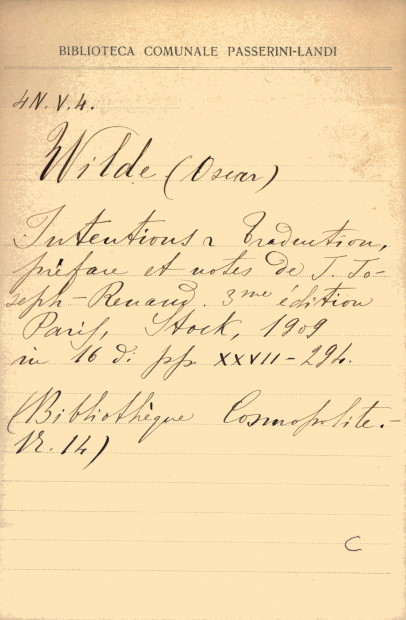 BIBLIOTECA COMUNALE PASSERINI-LANDI
4N.V.4.
Wilde (Oscar)
Intentions Traduction,
préface et notes de J. Jo-
seph-Renaud. 3me édition
Paris, Stock, 1909
in 16 d: pp XXVII-294.
(Bibliothèque Cosmopolite.-
Nr. 14)
C